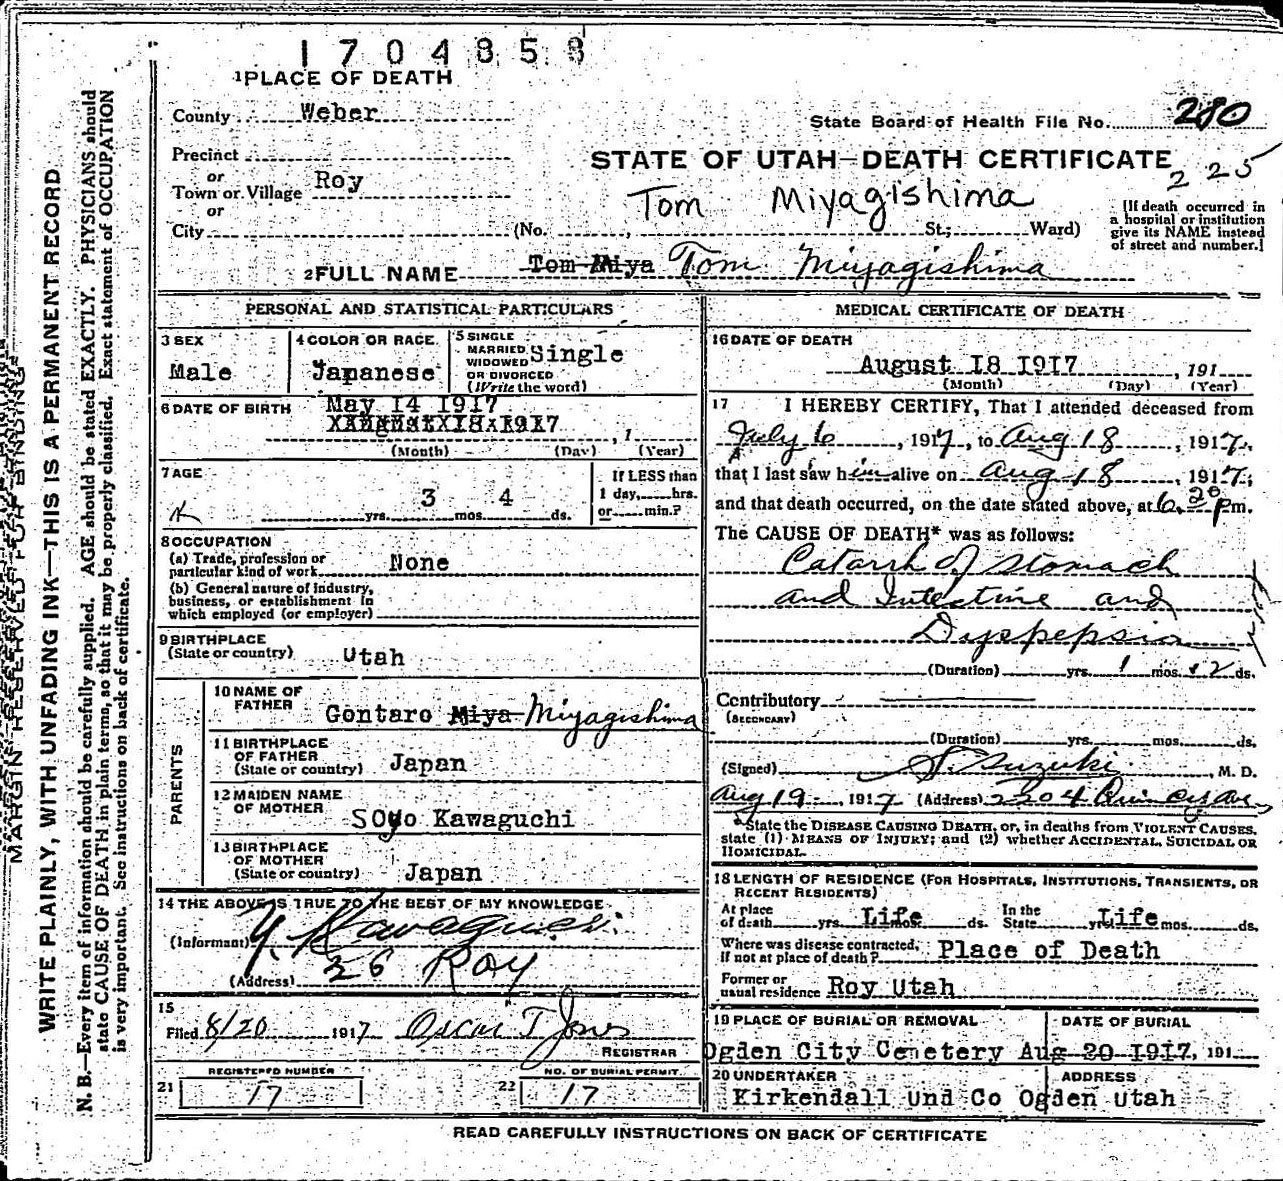 1704858
1 PLACE OF DEATH
County Weber
State Board of Health File No. 280
Precinct
STATE OF UTAH—DEATH CERTIFICATE
225
or
Town or Village Roy
Tom Miyagishima
or
City (No. , St.; Ward)
(If death occurred in
a hospital or institution
give its NAME instead
of street and number.)
2 FULL NAME Tom Miya Tom Miyagishima
PERSONAL AND STATISTICAL PARTICULARS
3 SEX
Male
4 COLOR OR RACE
Japanese
5 SINGLE
MARRIED
WIDOWED
OR DIVORCED
(Write the word)
Single
6 DATE OF BIRTH May 14 1917
XAugustX18X1917
, 1
(Month) (Day) (Year)
7 AGE
yrs. 3 mos. 4 ds.
If LESS than
1 day, hrs.
or min.?
8 OCCUPATION
(a) Trade, profession or
particular kind of work None
(b) General nature of industry,
business, or establishment in
which employed (or employer)
9 BIRTHPLACE
(State or country) Utah
PARENTS
10 NAME OF
FATHER
Gontaro Miya Miyagishima
11 BIRTHPLACE
OF FATHER
(State or country) Japan
12 MAIDEN NAME
OF MOTHER
SOyo Kawaguchi
13 BIRTHPLACE
OF MOTHER
(State or country) Japan
14 THE ABOVE IS TRUE TO THE BEST OF MY KNOWLEDGE
(Informant) Y. Kawaguchi
(Address) 26 Roy
15
Filed 8/20 1917 Oscar T Jones
REGISTRAR
REGISTERED NUMBER
21 17
NO. OF BURIAL PERMIT
22 17
MEDICAL CERTIFICATE OF DEATH
16 DATE OF DEATH
August 18 1917 , 191
(Month) (Day) (Year)
17 I HEREBY CERTIFY, That I attended deceased from
July 6, 1917, to Aug 18, 1917,
that I last saw him alive on Aug 18, 1917,
and that death occurred, on the date stated above, at 6.20 pm.
The CAUSE OF DEATH* was as follows:
Catarrh of Stomach
and Intestine and
Dyspepsia
(Duration) yrs. 1 mos. 12 ds.
Contributory
(SECONDARY)
(Duration) yrs. mos. ds.
(Signed) S. Suzuki, M. D.
Aug 19, 1917 (Address) 2304 Quincy Ave
*State the DISEASE CAUSING DEATH, or, in deaths from VIOLENT CAUSES,
state (1) MEANS OF INJURY; and (2) whether ACCIDENTAL, SUICIDAL OR
HOMICIDAL.
18 LENGTH OF RESIDENCE (FOR HOSPITALS, INSTITUTIONS, TRANSIENTS, OR
RECENT RESIDENTS)
At place
of death yrs. Life mos. ds. In the
State yrs. Life mos. ds.
Where was disease contracted,
if not at place of death? Place of Death
Former or
usual residence Roy Utah
19 PLACE OF BURIAL OR REMOVAL
DATE OF BURIAL
Ogden City Cemetery Aug 20 1917, 191
20 UNDERTAKER
ADDRESS
Kirkendall Und Co Ogden Utah
READ CAREFULLY INSTRUCTIONS ON BACK OF CERTIFICATE
MARGIN RESERVED FOR BINDING
WRITE PLAINLY, WITH UNFADING INK—THIS IS A PERMANENT RECORD
N. B.—Every item of information should be carefully supplied. AGE should be stated EXACTLY. PHYSICIANS should
state CAUSE OF DEATH in plain terms, so that it may be properly classified. Exact statement of OCCUPATION
is very important. See instructions on back of certificate.